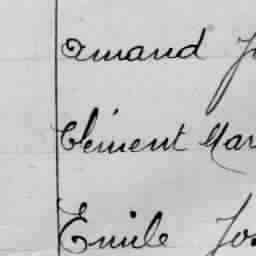 Amand J
Clément Mar
Emile Jos